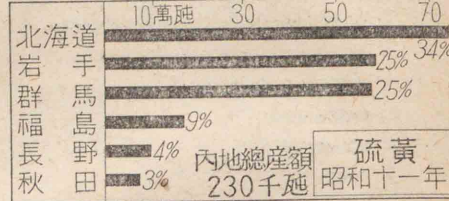 10萬瓲 30 50 70
北海道 34%
岩手 25%
群馬 25%
福島 9%
長野 4%
秋田 3%
內地總産額
230千瓲
硫黃
昭和十一年